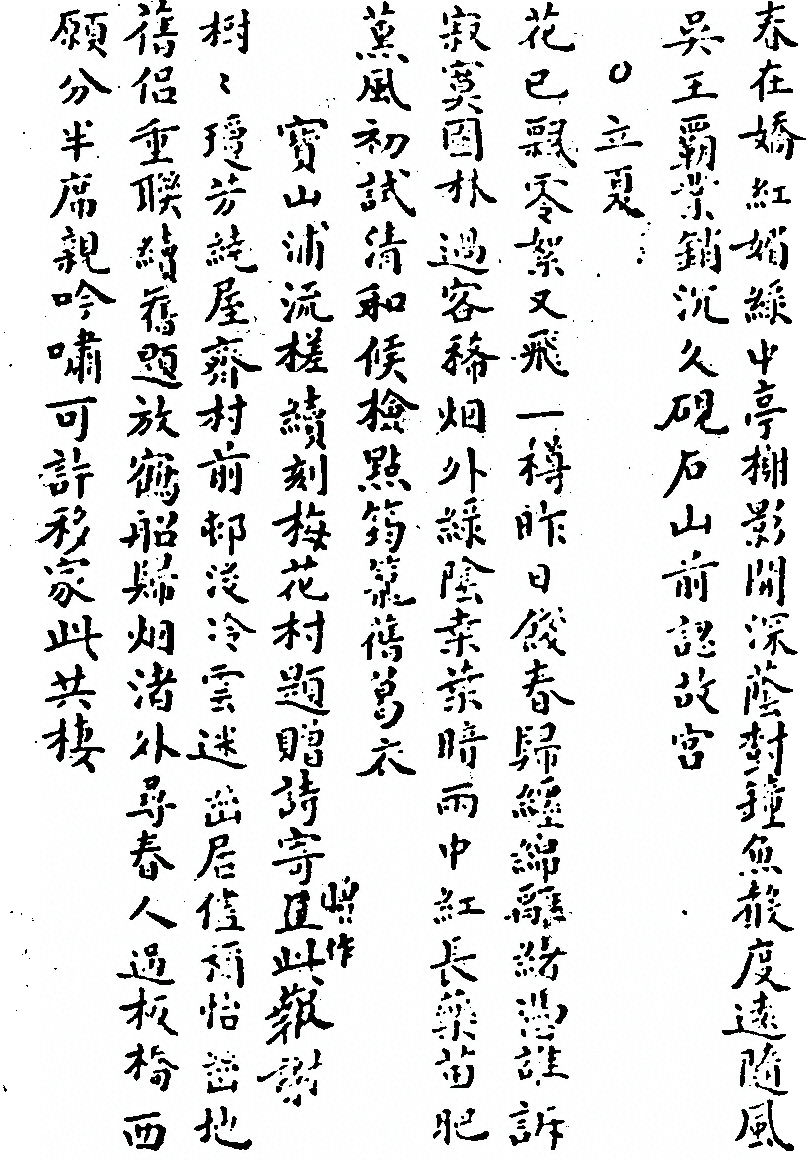 春在嬌紅媚綠中亭榭影開深蔭樹鐘魚度遠隨風
吳王覇業銷沉久硯石山前認故宮
〇立夏
花已飄零絮又飛一樽昨日餞春歸纏綿離緒憑誰訴
寂寞園林過客稀烟外綠陰桑葉暗雨中紅長藥苗肥
薰風初試清和候檢點筠籠舊葛衣
寶山浦流槎續刻梅花村題贈詩寄且作此報謝
樹〻瓊芳繞屋齊村前邨後冷雲迷幽居怡幽地
舊侶重聯續舊題放鶴船歸烟渚外尋春人過板橋西
願分半席親吟嘯可許移家此共棲